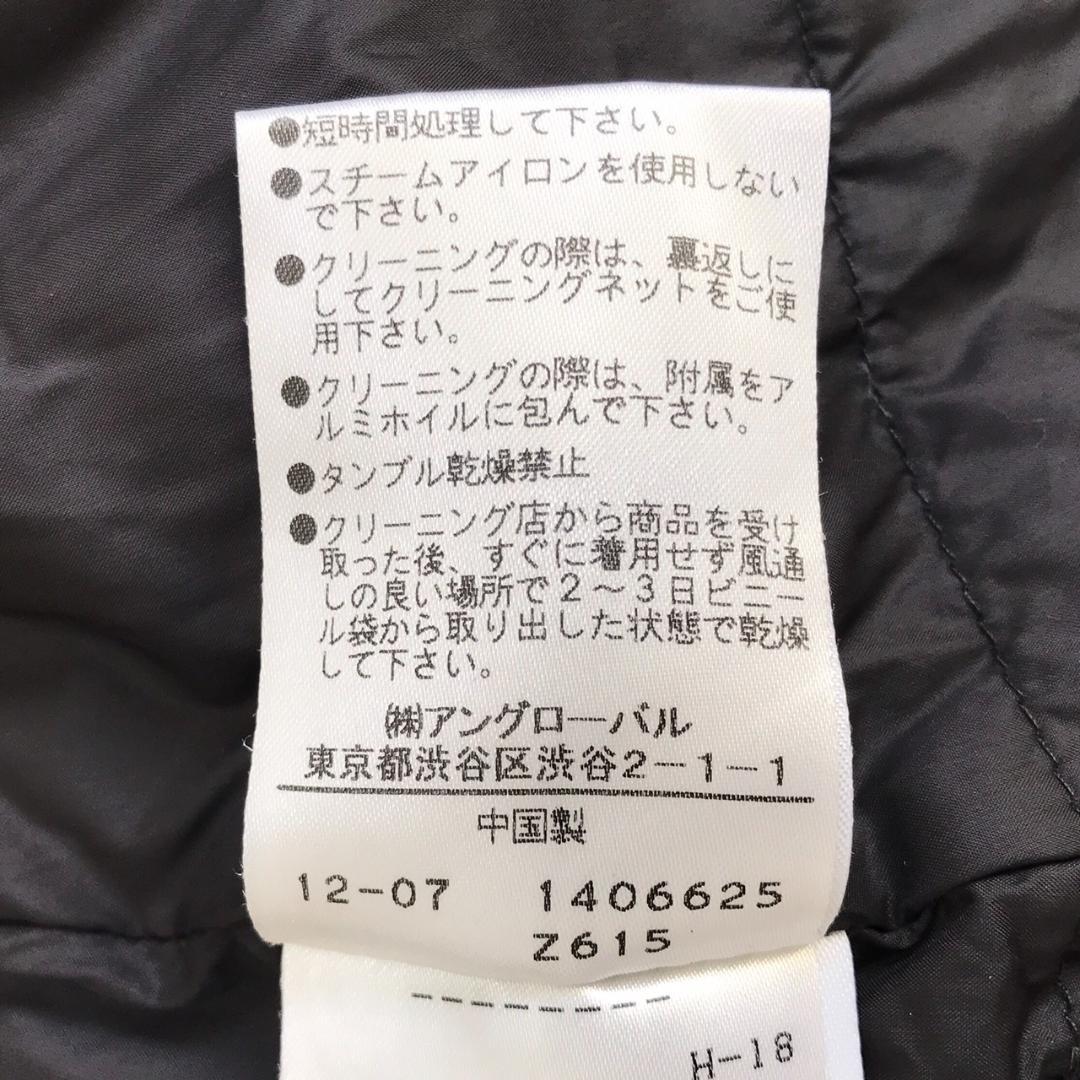 ●短時間処理して下さい。
●スチームアイロンを使用しない
で下さい。
●クリーニングの際は、裏返しに
してクリーニングネットをご使
用下さい。
●クリーニングの際は、附属をア
ルミホイルに包んで下さい。
●タンブル乾燥禁止
●クリーニング店から商品を受け
取った後、すぐに着用せず風通
しの良い場所で2～3日ビニー
ル袋から取り出した状態で乾燥
して下さい。
㈱アングローバル
東京都渋谷区渋谷2-1-1
中国製
12-07 1406625
Z615
H-18